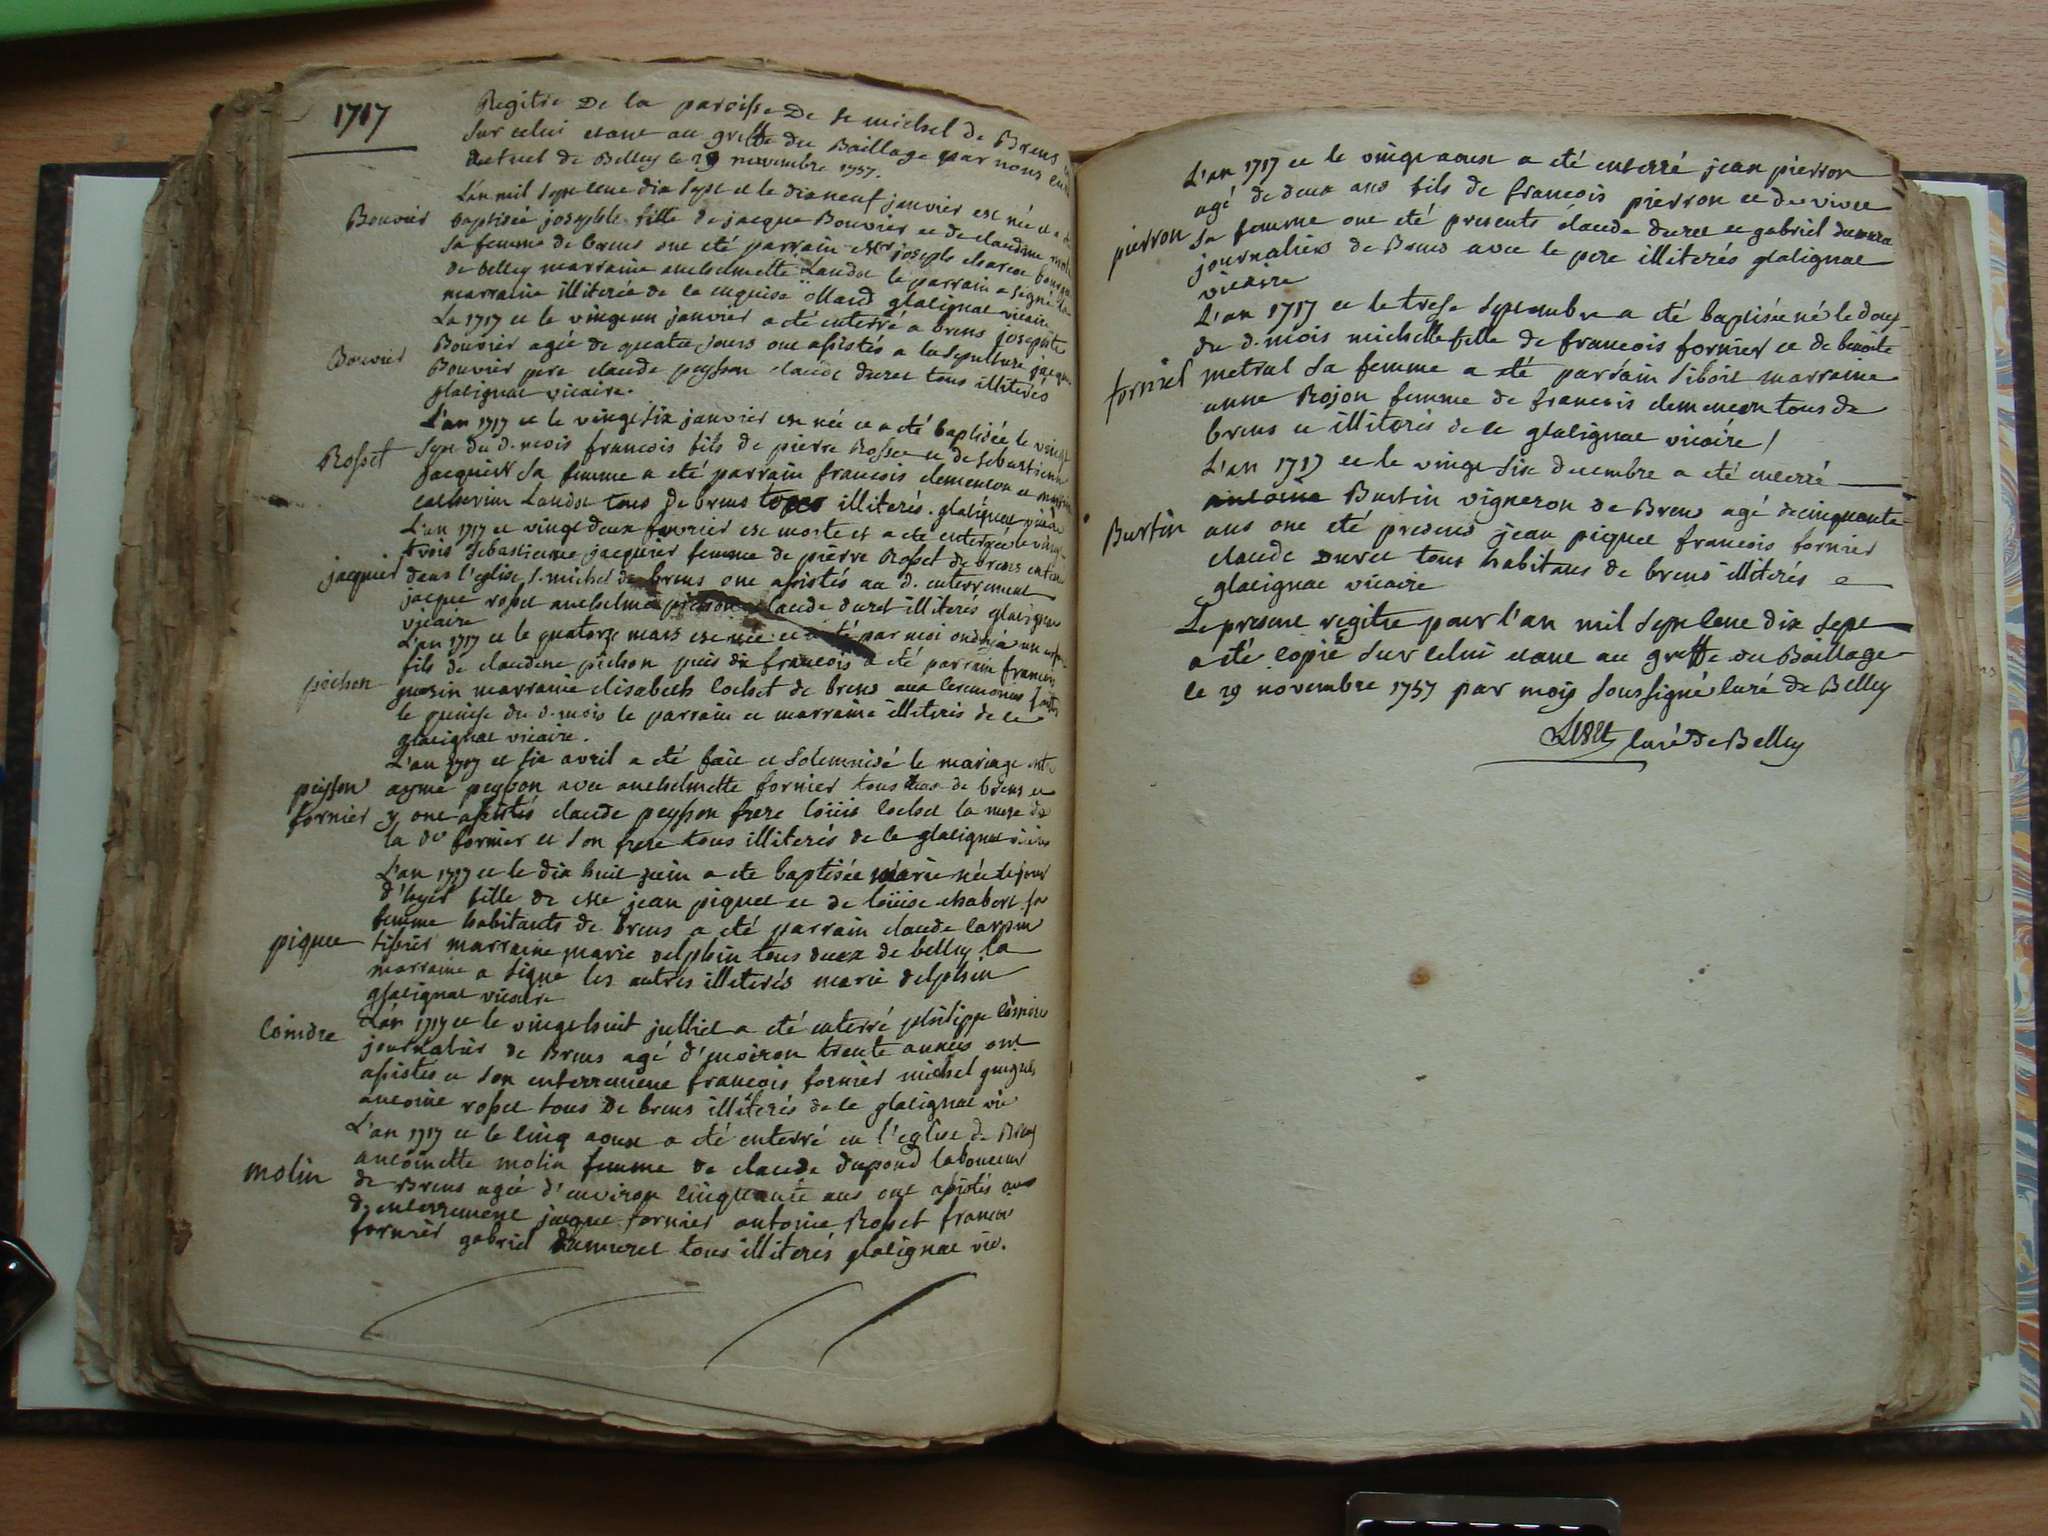 1717
Registre De la paroisse De st michel de Brens
sur celui etant au greffe du Bailliage par nous
de Belley le 29 novembre 1757.
L'an mil sept cent dix sept et le dix neuf janvier est née et a
Bouvier baptisée josephte fille de jacque Bouvier et de claudine
sa femme de brens ont été parrain joseph
de belley marraine anthelmette Landoz le parrain a signé la
marraine illiterée de ce enquise glatignat vicaire
La 1717 et le vingt un janvier a été enterré a brens josephte
Bouvier Bouvier agée de quatre jours ont assistés a la sepulture jacque
Bouvier pere claude peysson claude duret tous illiterés
glatignat vicaire.
L'an 1717 et le vingt six janvier est né et a été baptisée le vingt
Rosset sept du d. mois francois fils de pierre Rosset et de sebastienne
jacquier sa femme a été parrain francois clemencon et marraine
catherine Landoz tous de brens illiterés. glatignat vicaire
L'an 1717 et vingt deux fevrier est morte et a été enterrée le vingt
trois sebastienne jacquier femme de pierre Rosset de brens
jacquier dans l'eglise s. michel de brens ont assistés au d. enterrement
jacque rosset anthelme pichon claude duret illiterés glatignat
vicaire
L'an 1717 et le quatorze mars est né et a été par moi ondoyé un
fils de claudine pichon puis dit francois a été parrain francois
pichon marraine elisabeth cochet de brens aux ceremonies faittes
le quinze du d. mois le parrain et marraine illiterés de ce
glatignat vicaire.
L'an 1717 et six avril a été fait et solemnisé le mariage entre
peysson aymé peysson avec anthelmette fornier tous deux de brens et
fornier y ont assistés claude peysson frere loüis cochet la mere de
la de fornier et son frere tous illiterés de ce glatignat vicaire
L'an 1717 et le dix huit juin a été baptisée marie née le jour
d'hyer fille de jean piquet et de loüise chabert sa
femme habitants de brens a été parrain claude
piquet tissier marraine marie delphin tous deux de belley la
marraine a signé les autres illiterés marie delphin
glatignat vicaire
L'an 1717 et le vingt huit julliet a été enterré philippe coindre
coindre journalier de Brens agé d'environ trente années ont
assistés a son enterrement francois fornier michel
antoine rosset tous de brens illiterés de ce glatignat vic
L'an 1717 et le cinq aoust a été enterré en l'eglise de Brens
molin antoinette molin femme de claude dupond laboureur
de Brens agée d'environ cinquante ans ont assistés aud
d. enterrement jacque fornier antoine Rosset francois
fornier gabriel dumuret tous illiterés glatignat vic.
L'an 1717 et le vingt aoust a été enterré jean pierron
agé de deux ans fils de francois pierron et de
pierron sa femme ont été presents claude duret et gabriel dumuret
journaliers de Brens avec le pere illiterés glatignat
vicaire
L'an 1717 et le trese septembre a été baptisée né le douze
du d. mois michelle fille de francois fornier et de benoite
fornier metral sa femme a été parrain marraine
anne Rojon femme de francois clemencon tous de
brens et illiterés de ce glatignat vicaire /
L'an 1717 et le vingt six decembre a été enterré
antoine Burtin vigneron de Brens agé de cinquante
Burtin ans ont été presens jean piquet francois fornier
claude duret tous habitans de brens illiterés
glatignat vicaire
Le present registre pour l'an mil sept cent dix sept
a été copié sur celui etant au greffe du Bailliage
le 29 novembre 1757 par moy soussigné curé de Belley
curé de Belley